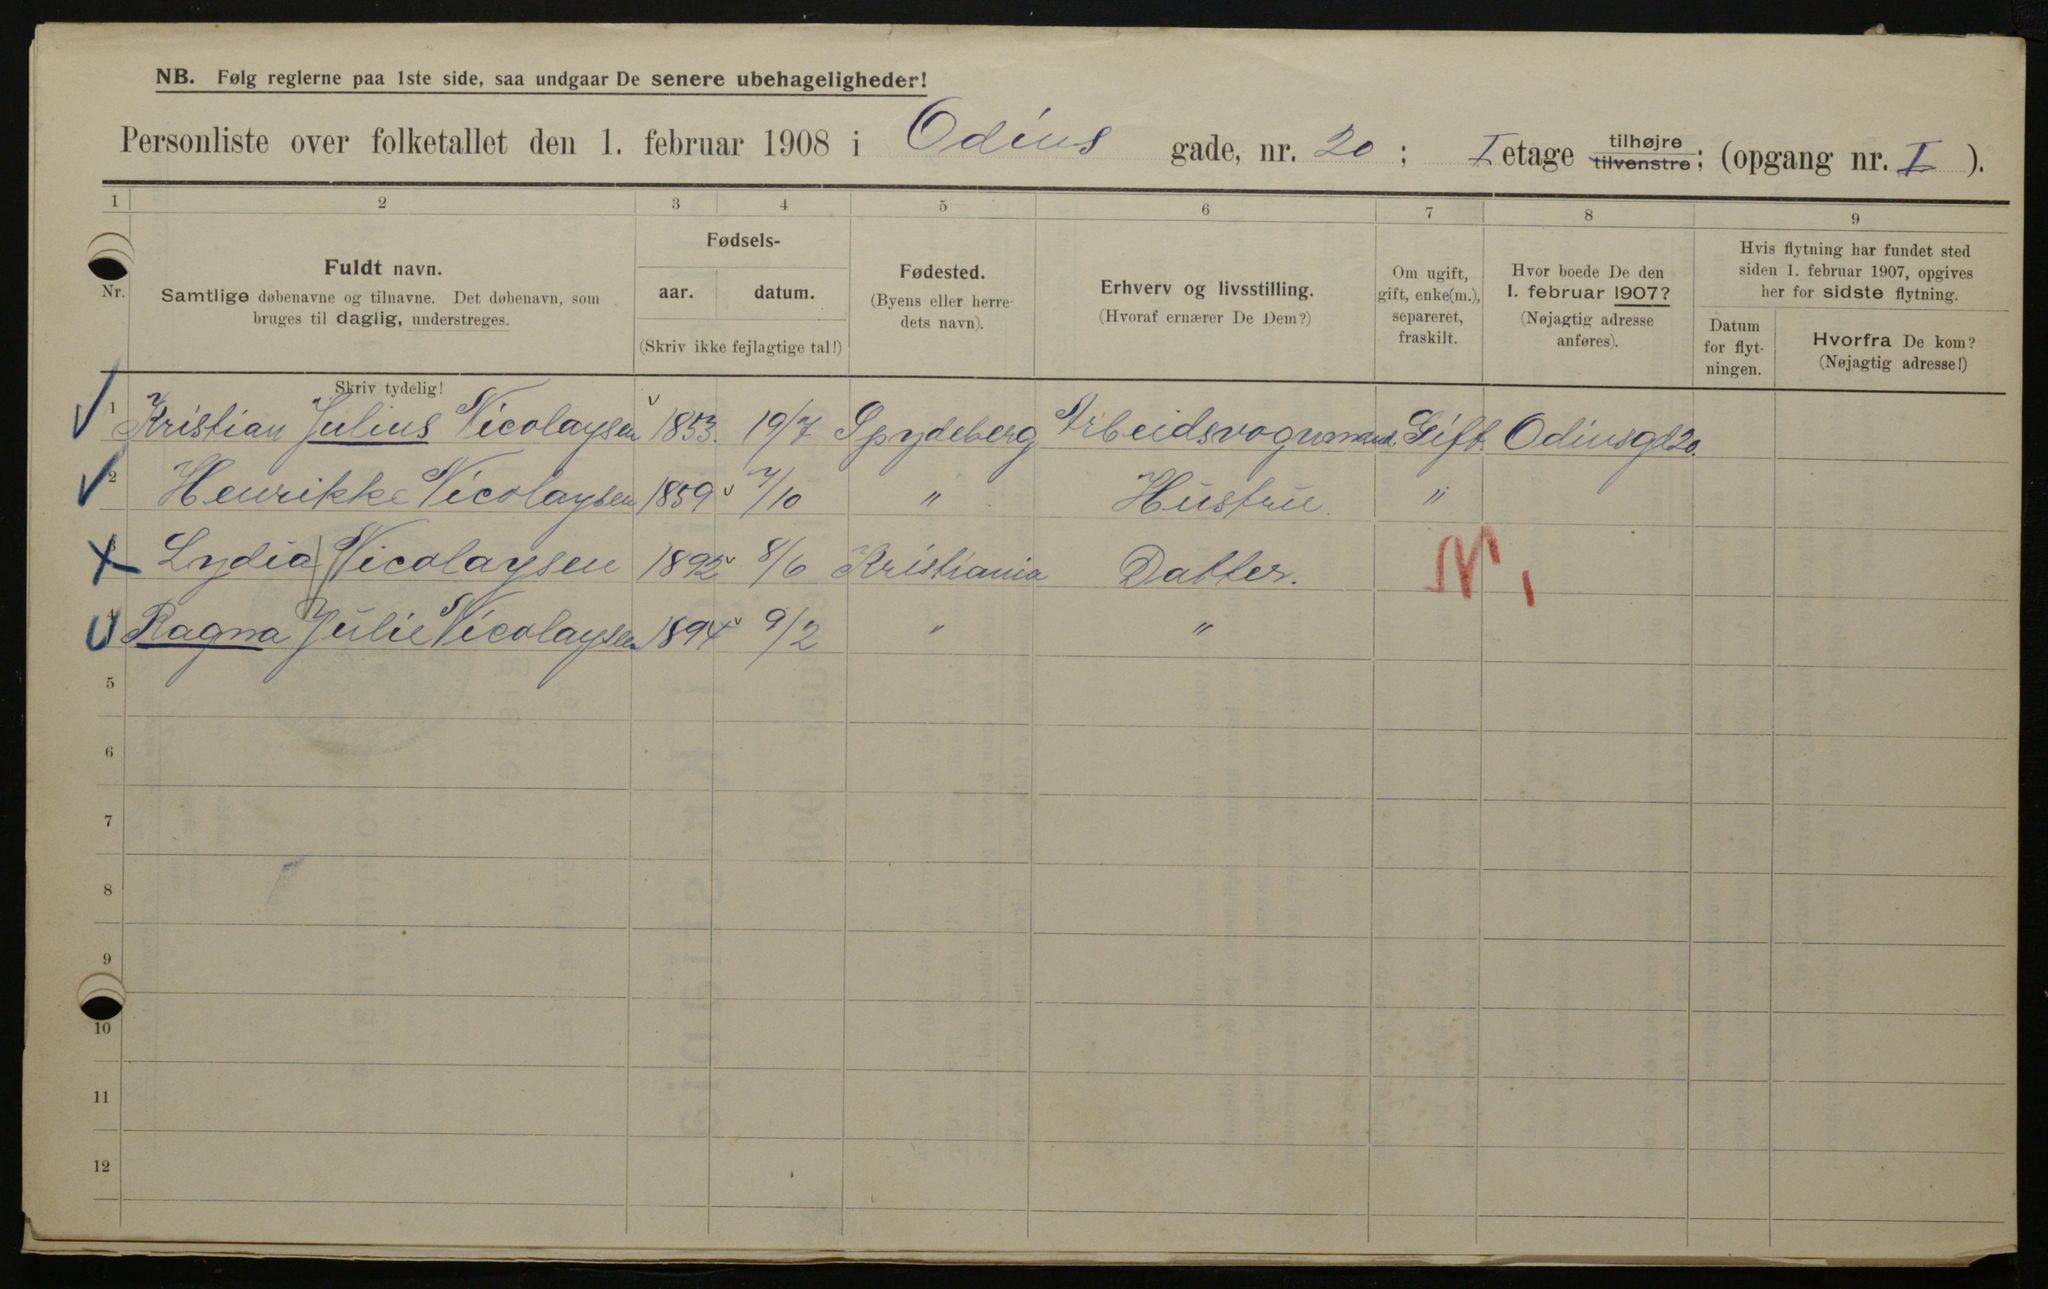 NB. Følg reglerne paa 1ste side, saa undgaar De senere ubehageligheder!
Personliste over folketallet den 1. februar 1908 i Odins gade, nr. 20 ; I etage tilhøjre tilvenstre; (opgang nr. I ).
1 2 3 4 5 6 7 8 9
Nr.
Fuldt navn.
Samtlige døbenavne og tilnavne. Det døbenavn, som
bruges til daglig, understreges.
Skriv tydelig!
Fødsels-
aar. datum.
(Skriv ikke fejlagtige tal!)
Fødested.
(Byens eller herre-
dets navn).
Erhverv og livsstilling.
(Hvoraf ernærer De Dem?)
Om ugift,
gift, enke(m.),
separeret,
fraskilt.
Hvor boede De den
1. februar 1907?
(Nøjagtig adresse
anføres).
Hvis flytning har fundet sted
siden 1. februar 1907, opgives
her for sidste flytning.
Datum
for flyt-
ningen.
Hvorfra De kom?
(Nøjagtig adresse!)
1 Kristian Julius Nicolaysen 1853. 19/7 Spydeberg Arbeidsvognmand Gift. Odinsgd 20.
2 Henrikke Nicolaysen 1859 7/10 " Hustru. "
3 Lydia Nicolaysen 1892 8/6 Kristiania Datter.
4 Ragna Julie Nicolaysen 1894 9/2 " "
5
6
7
8
9
10
11
12